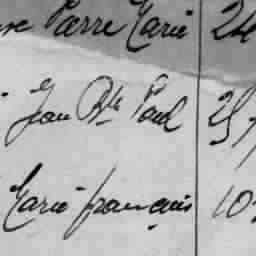 Pierre Marie 24
Jean Bte Paul 25
Marie françois 10